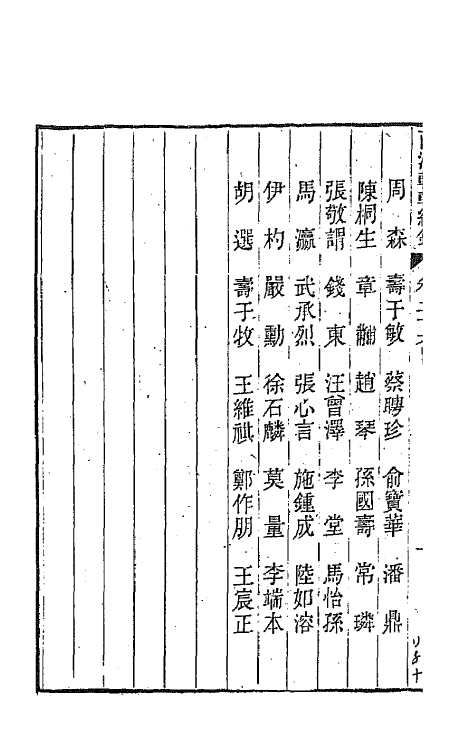 周森　壽于敏　蔡聘珍　俞寶華　潘鼎
陳桐生　章黼　趙琴　孫國壽　常璘
張敬謂　錢東　汪曾澤　李堂　馬怡孫
馬瀛　武承烈　張心言　施鍾成　陸如溶
伊杓　嚴勳　徐石麟　莫量　李端本
胡選　壽于牧　王維祺　鄭作朋　王宸正